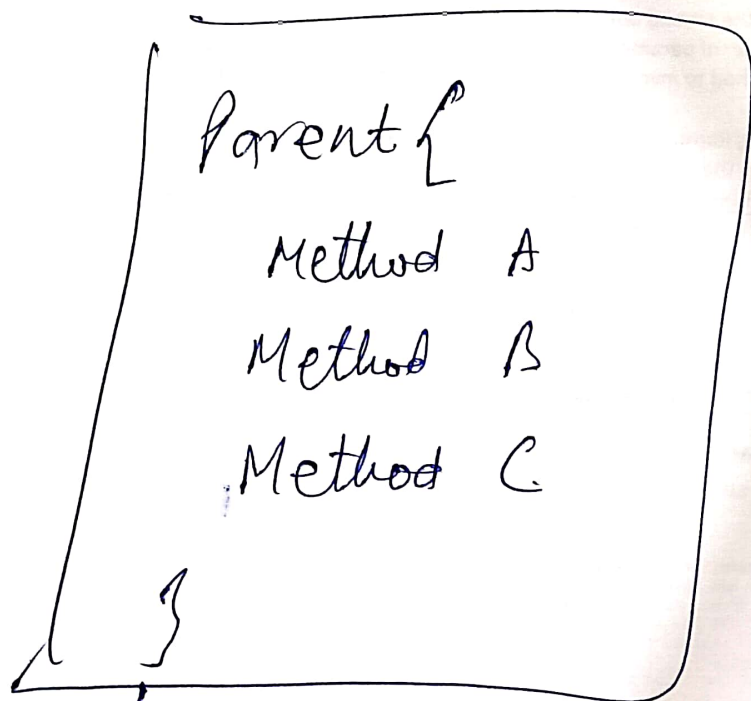 Parent {
Method A
Method B
Method C
}